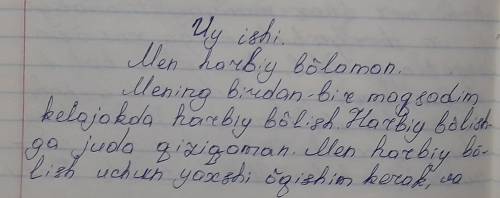 Uy ishi.
Men harbiy bôlaman.
Mening birdan-bir maqsadim
kelajakda harbiy bôlish. Harbiy bôlish-
ga juda qiziqaman. Men harbiy bô-
lish uchun yaxshi ôqishim kerak, va